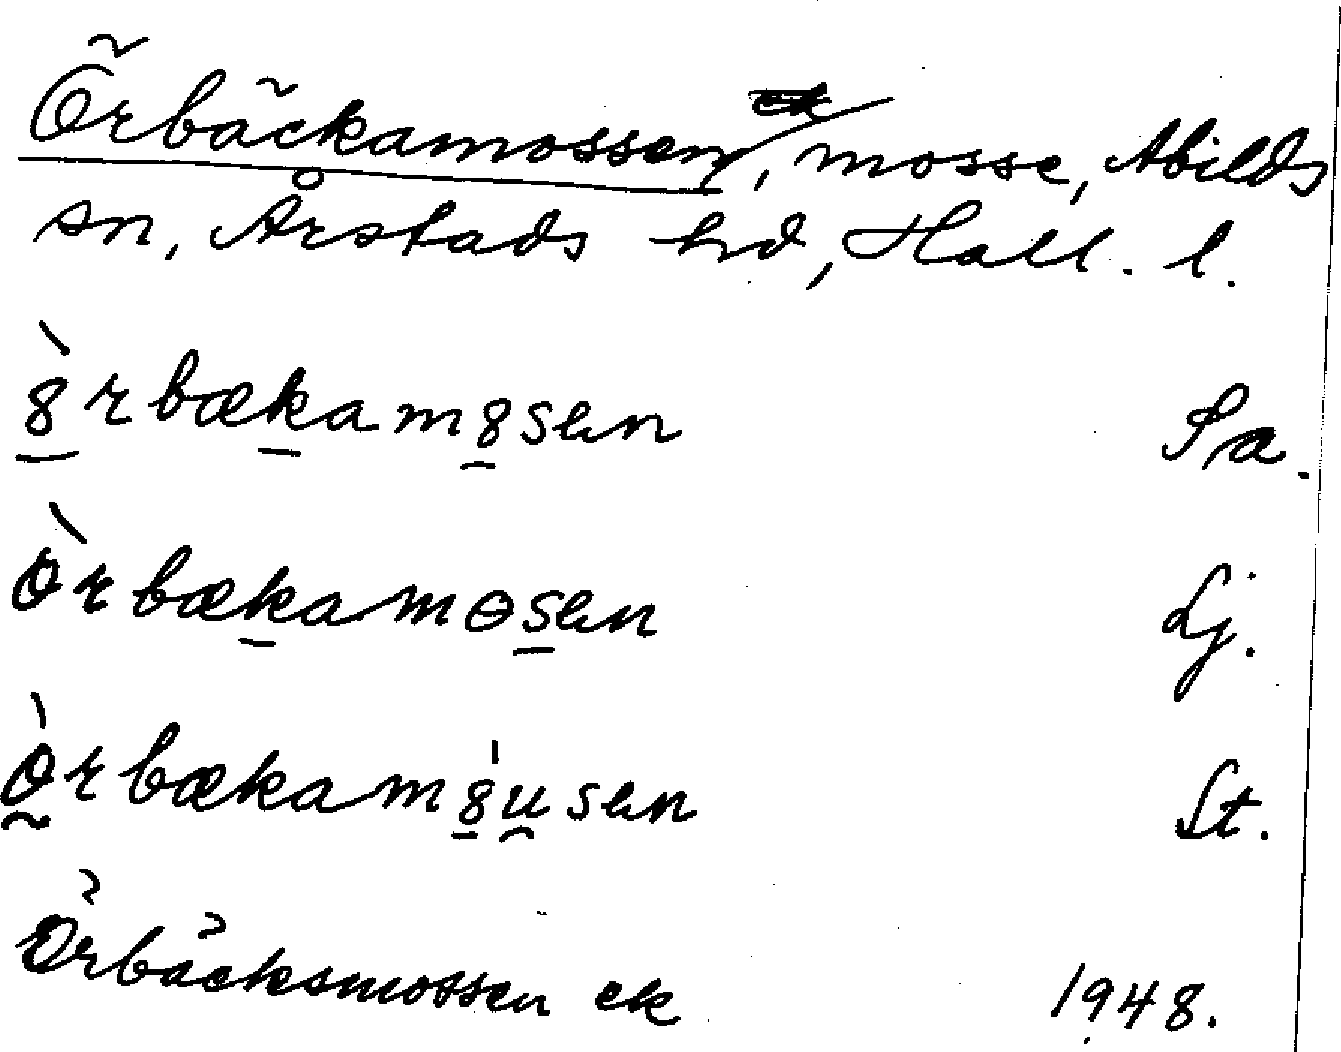 Örbäckamossen, mosse, Abilds
sn, Årstads hd, Hall. l.
ȣ̀rbækamȣsen Sa.
ɵ̀rbækamɵsen Lj.
ɵ̀rbækamȣusen St.
Örbäcksmossen ek 1948.